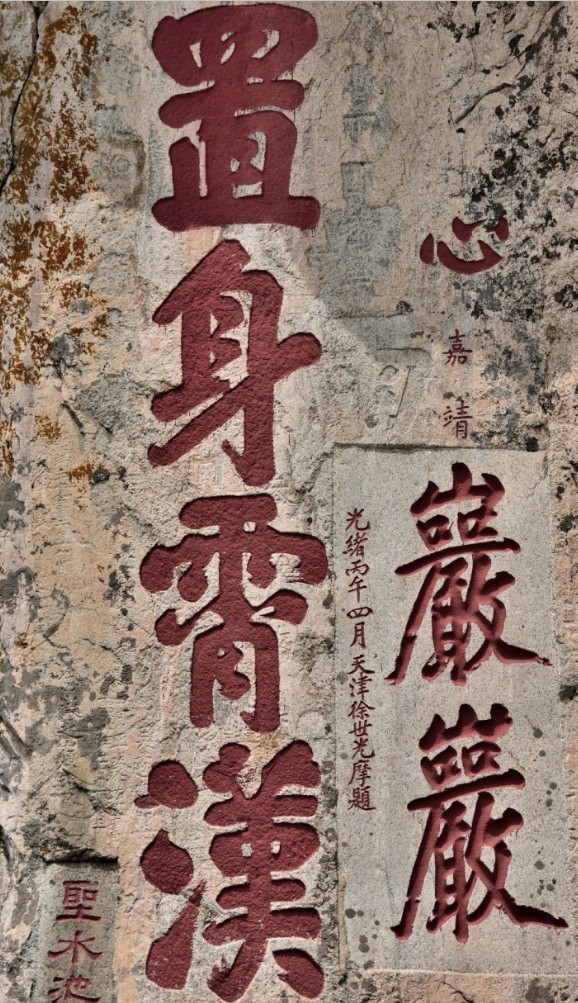 心
嘉靖
巖巖
光緒丙午四月天津徐世光摩題
置身霄漢
聖水池